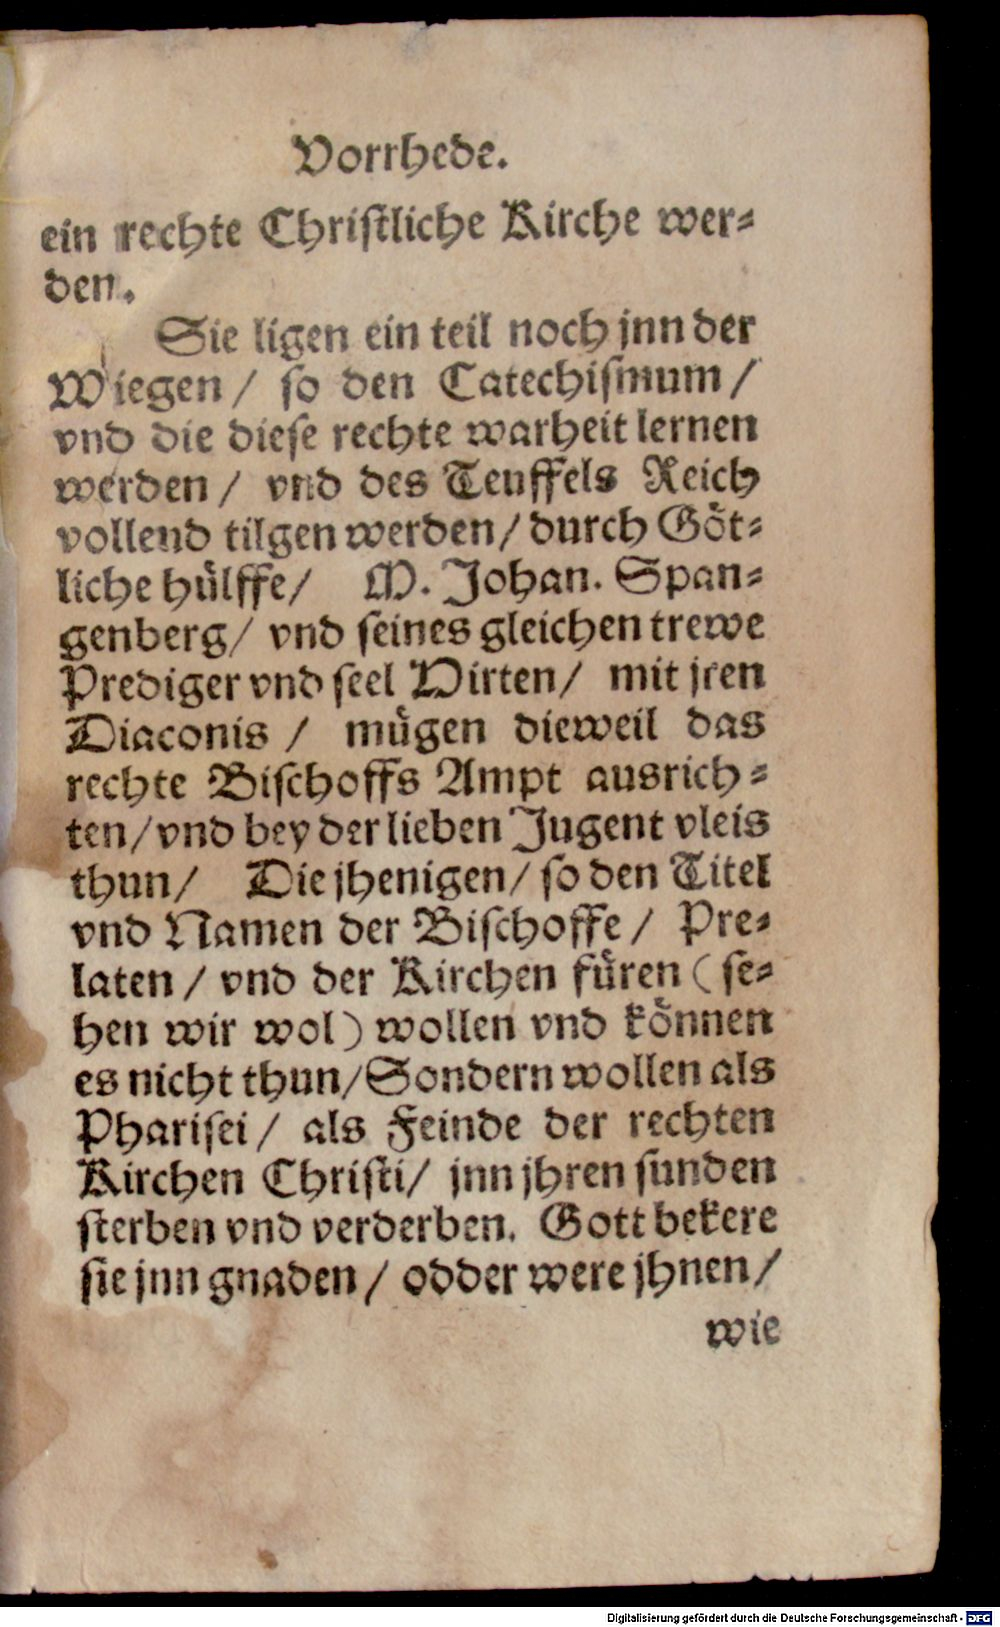 Vorrhede.
ein rechte Christliche Kirche wer⸗
den.
Sie ligen ein teil noch jnn der
Wiegen / so den Catechismum /
vnd die diese rechte warheit lernen
werden / vnd des Teuffels Reich
vollend tilgen werden / durch Göt⸗
liche hülffe / M. Johan. Span⸗
genberg / vnd seines gleichen trewe
Prediger vnd seel Hirten / mit jren
Diaconis / mügen dieweil das
rechte Bischoffs Ampt ausrich⸗
ten / vnd bey der lieben Jugent vleis
thun / Die jhenigen / so den Titel
vnd Namen der Bischoffe / Pre⸗
laten / vnd der Kirchen füren ( se⸗
hen wir wol ) wollen vnd können
es nicht thun / Sondern wollen als
Pharisei / als Feinde der rechten
Kirchen Christi / jnn jhren sunden
sterben vnd verderben. Gott bekere
sie jnn gnaden / odder were jhnen /
wie
Digitalisierung gefördert durch die Deutsche Forschungsgemeinschaft - DFG